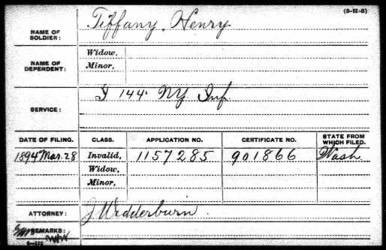 (3-II-6)
NAME OF SOLDIER: Tiffany, Henry
NAME OF DEPENDENT: Widow,
Minor,
SERVICE: I 144 NY Inf
DATE OF FILING. CLASS. APPLICATION NO. CERTIFICATE NO. STATE FROM WHICH FILED.
1894 Mar. 28 Invalid, 1157285 901866 Wash
Widow,
Minor,
ATTORNEY: J. Wedderburn.
REMARKS: